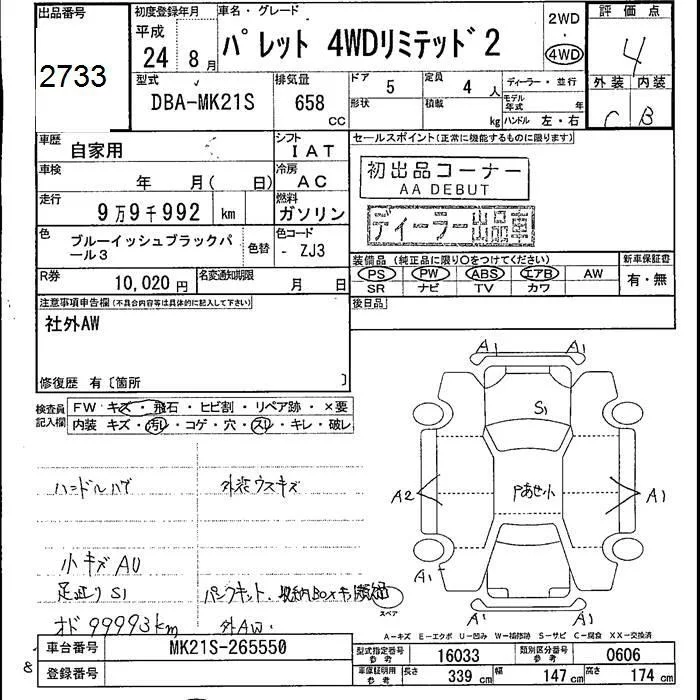 出品番号
2733
初度登録年月
平成
24 8月
車名・グレード
パレット 4WDリミテッド2
2WD
・
4WD
評価点
4
型式
DBA-MK21S
排気量
658
CC
ドア
5
定員
4 人
形状
積載
kg
ディーラー・並行
モデル年式 年
ハンドル 左・右
外装 内装
C B
車歴
自家用
シフト
IAT
車検
年 月( 日)
冷房
AC
走行
9万9千992 km
燃料
ガソリン
色
ブルーイッシュブラックパール3
色替
色コード
- ZJ3
R券
10,020円
名変通知期限
月 日
セールスポイント(正常に機能するものに限ります)
初出品コーナー
AA DEBUT
ディーラー出品車
装備品(純正品に限り○をつけてください)
PS PW ABS エアB AW
SR ナビ TV カワ
新車保証書
有・無
後日品
注意事項申告欄(不具合内容等は具体的に記入して下さい)
社外AW
修復歴 有〔箇所 〕
検査員記入欄
FW キズ・飛石・ヒビ割・リペア跡・×要
内装 キズ・汚レ・コゲ・穴・スレ・キレ・破レ
ハンドルハゲ
外装ウスキズ
小キズAU
足廻りS1
オド99993km
外AW.
A1 A1
S1
A2
Pあせ小
A1
A1
A1 A1
スペア
A-キズ E-エクボ U-凹み W-補修跡 S-サビ C-腐食 XX-交換済
車台番号
MK21S-265550
登録番号
8
型式指定番号
参考
16033
類別区分番号
参考
0606
車庫証明用
参考
長さ
339 cm
幅
147 cm
高さ
174 cm